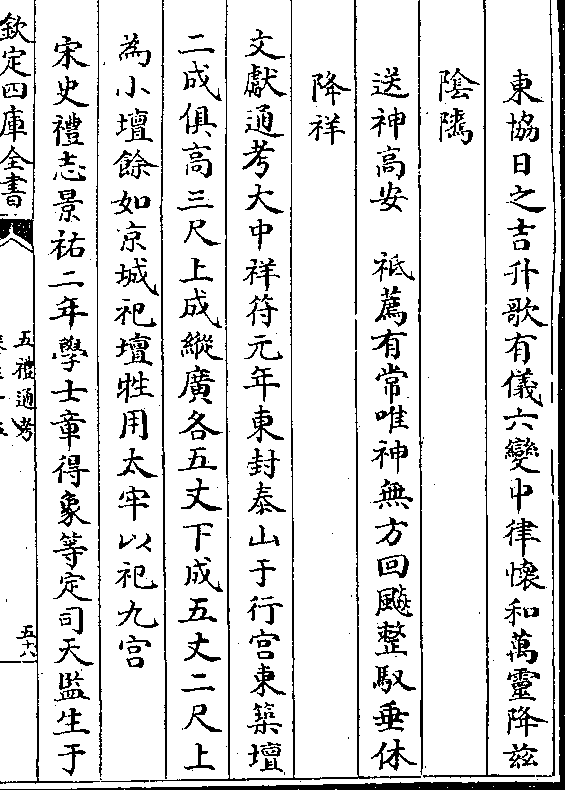 東協日之吉升歌有儀六變中律懷和萬靈降兹
陰隲
送神高安　祗薦有常唯神無方回飈整馭垂休
降祥
文獻通考大中祥符元年東封泰山于行宫東築壇
二成俱高三尺上成縱廣各五丈下成五丈二尺上
為小壇餘如京城祀壇牲用太牢以祀九宫
宋史禮志景祐二年學士章得象等定司天監生于
欽定四庫全書
五禮通考
五十六